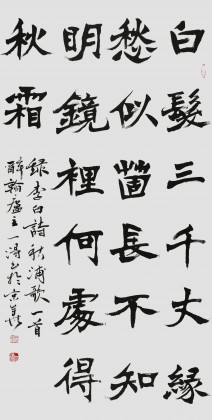 白髮三千丈緣
愁似箇長不知
明鏡裡何處得
秋霜
錄李白詩秋浦歌一首
醉翰廬主